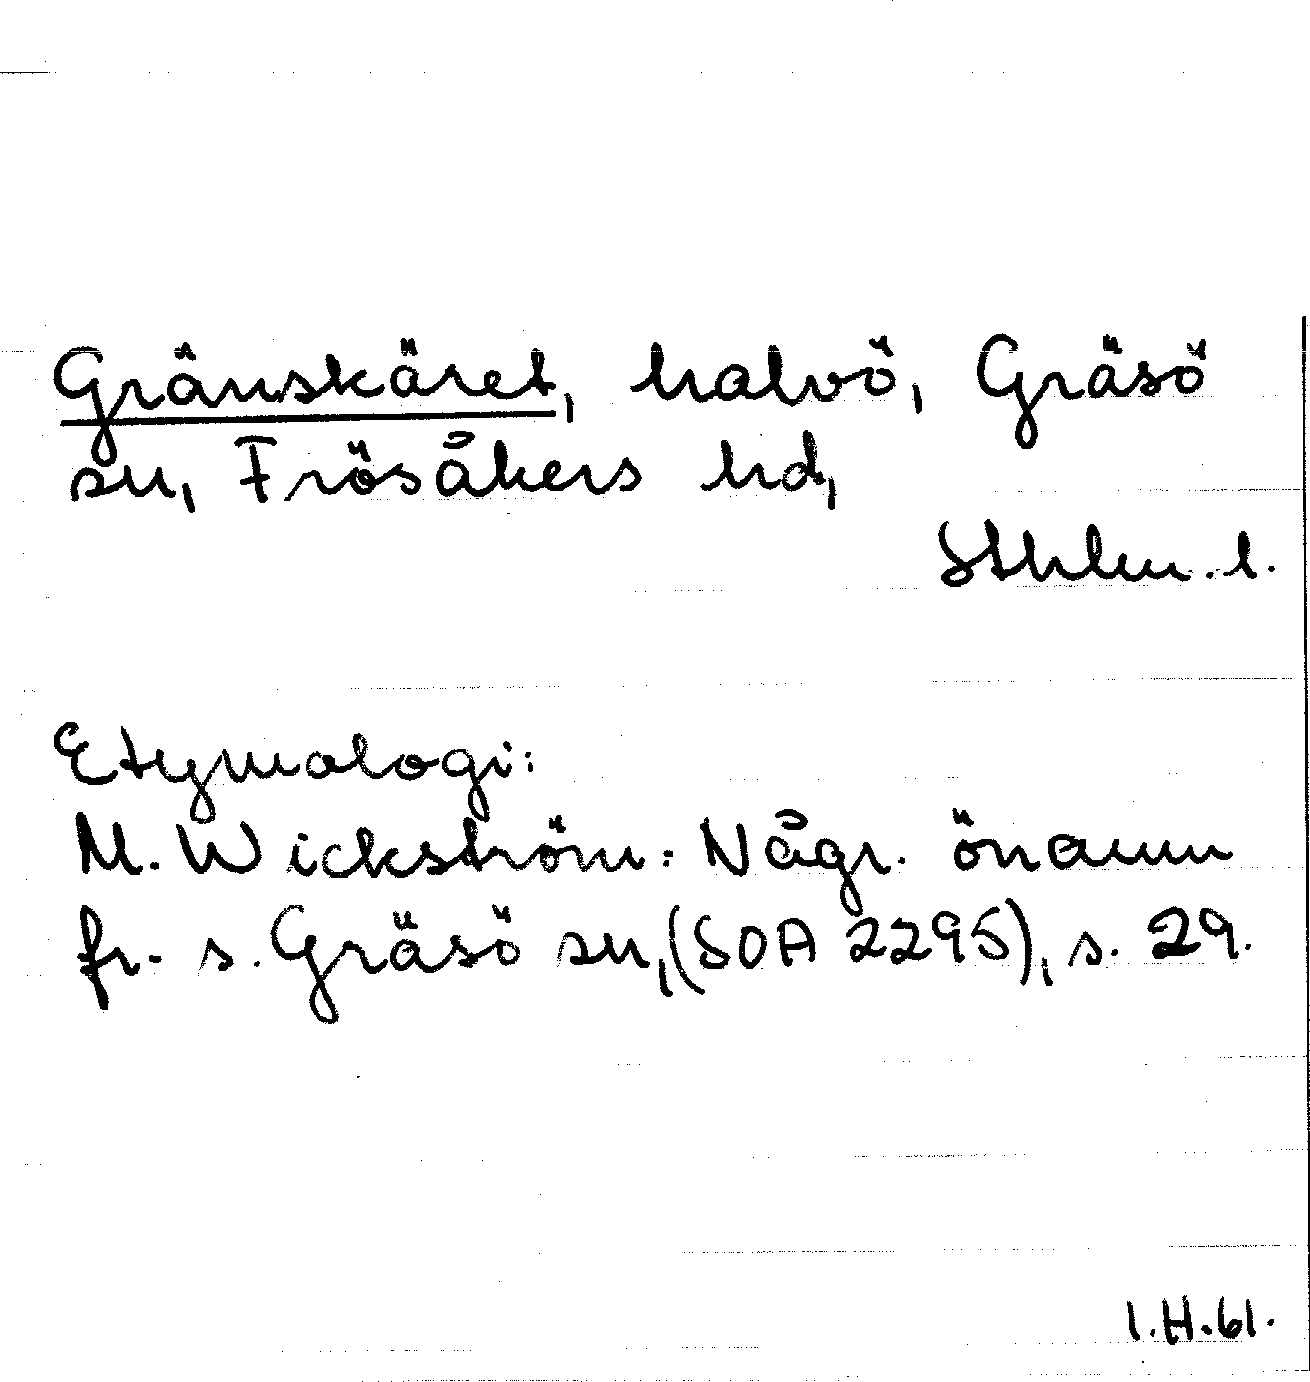 Gränskäret, halvö, Gräsö
sn, Frösåkers hd,
Sthlm. l.
Etymologi:
M. Wickström: Någr. önamn
fr. s. Gräsö sn, (SOA 2295), s. 29.
I.H.61.